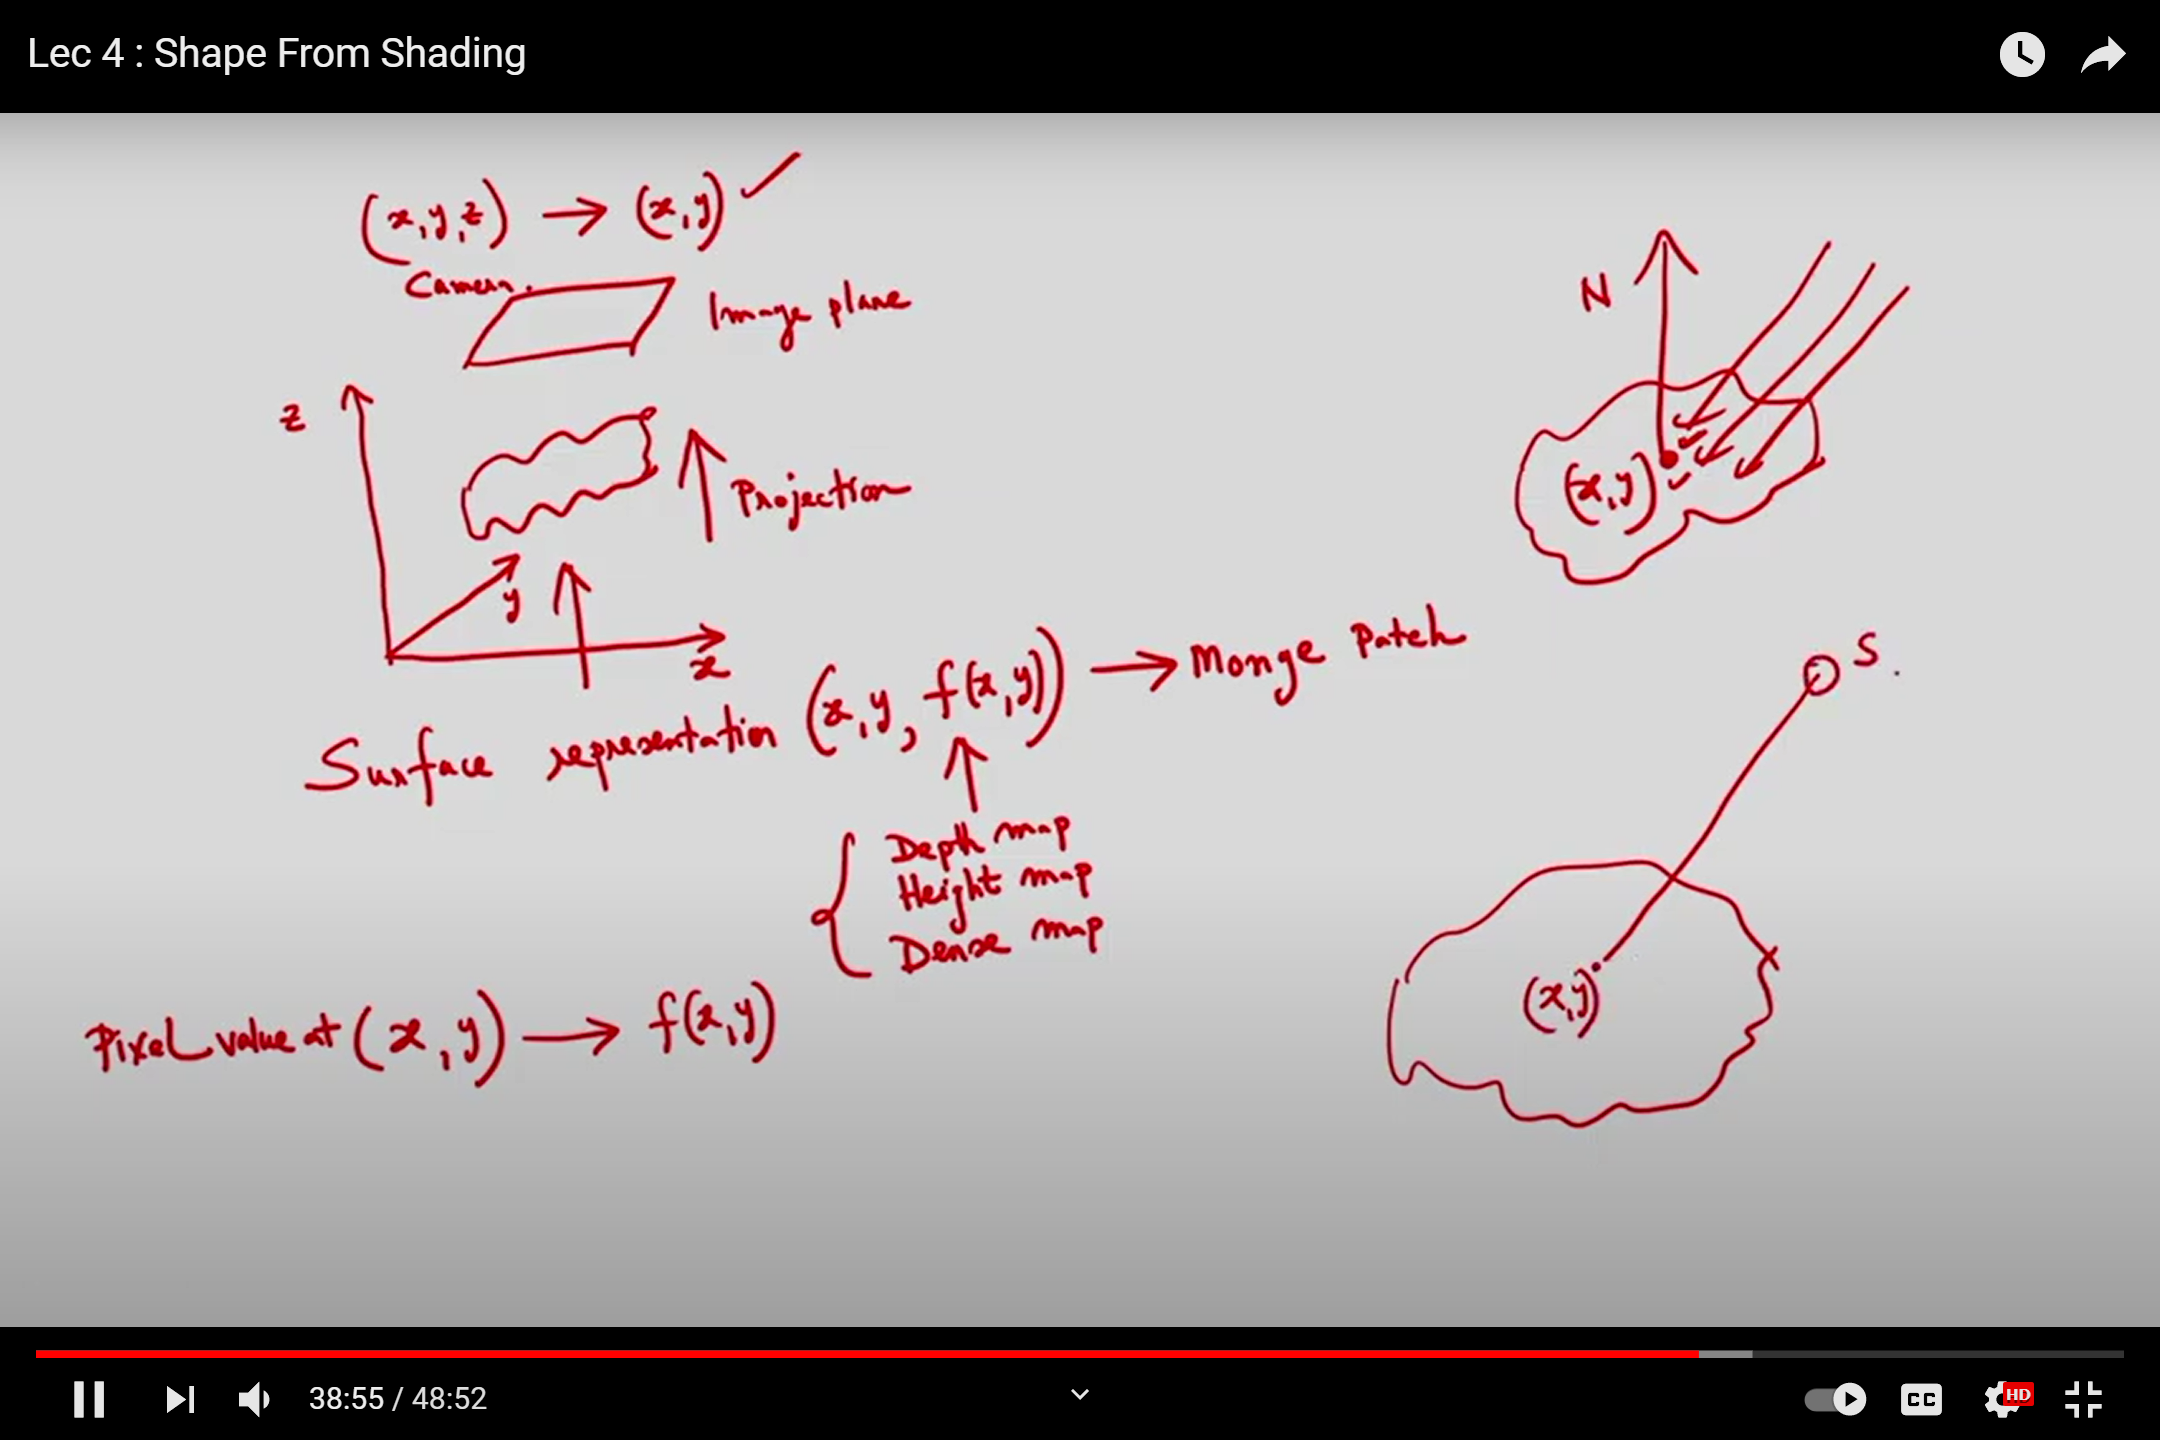 Lec 4 : Shape From Shading
(x,y,z) → (x,y) ✓
Camera.
Image plane
N
z
Projection
(x,y)
y
x
Surface representation (x,y, f(x,y)) → Monge Patch
S.
Depth map
Height map
Dense map
(x,y)
Pixel value at (x,y) → f(x,y)
38:55 / 48:52
CC
HD